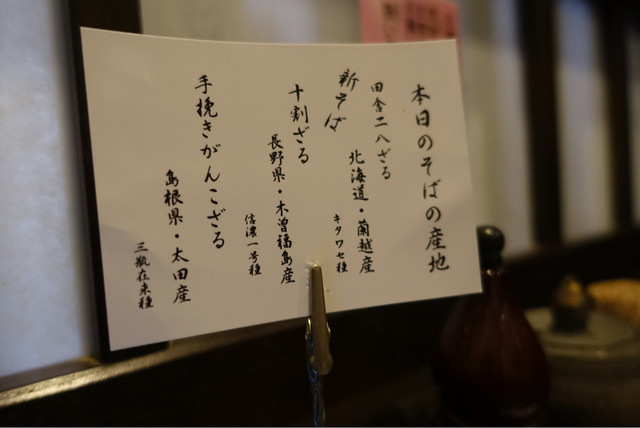 本日のそばの産地
田舎二八ざる
新そば
北海道・蘭越産
キタワセ種
十割ざる
長野県・木曽福島産
信濃一号種
手挽きがんこざる
島根県・太田産
三瓶在来種